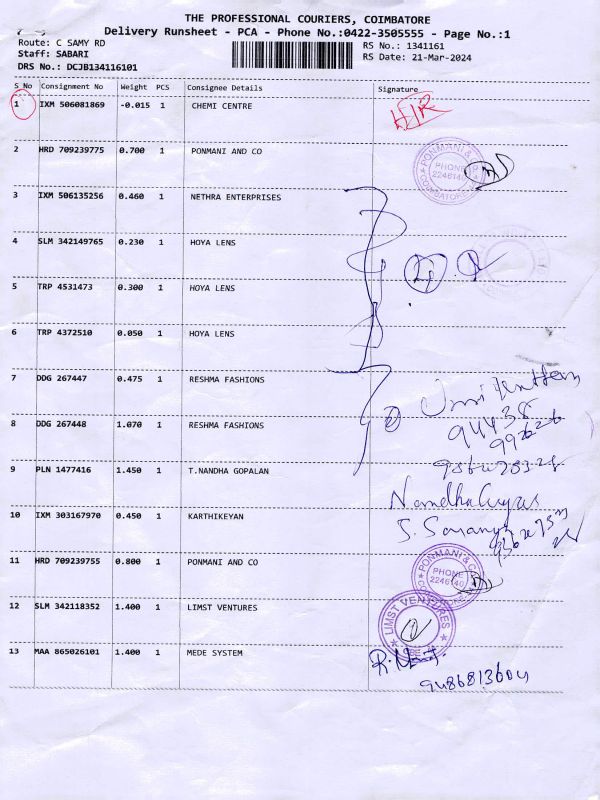 THE PROFESSIONAL COURIERS, COIMBATORE
Delivery Runsheet - PCA - Phone No.:0422-3505555 - Page No.:1
Route: C SAMY RD
RS No.: 1341161
Staff: SABARI
RS Date: 21-Mar-2024
DRS No.: DCJB134116101
S No Consignment No Weight PCS Consignee Details Signature
1 IXM 506081869 -0.015 1 CHEMI CENTRE
2 HRD 709239775 0.700 1 PONMANI AND CO PONMANI & CO PHONE COIMBATORE
3 IXM 506135256 0.460 1 NETHRA ENTERPRISES
4 SLM 342149765 0.230 1 HOYA LENS
5 TRP 4531473 0.300 1 HOYA LENS
6 TRP 4372510 0.050 1 HOYA LENS
7 DDG 267447 0.475 1 RESHMA FASHIONS
8 DDG 267448 1.070 1 RESHMA FASHIONS
9 PLN 1477416 1.450 1 T.NANDHA GOPALAN
10 IXM 303167970 0.450 1 KARTHIKEYAN
11 HRD 709239755 0.800 1 PONMANI AND CO PONMANI & CO PHONE
12 SLM 342118352 1.400 1 LIMST VENTURES LIMST VENTURES
13 MAA 865026101 1.400 1 MEDE SYSTEM
9486813604